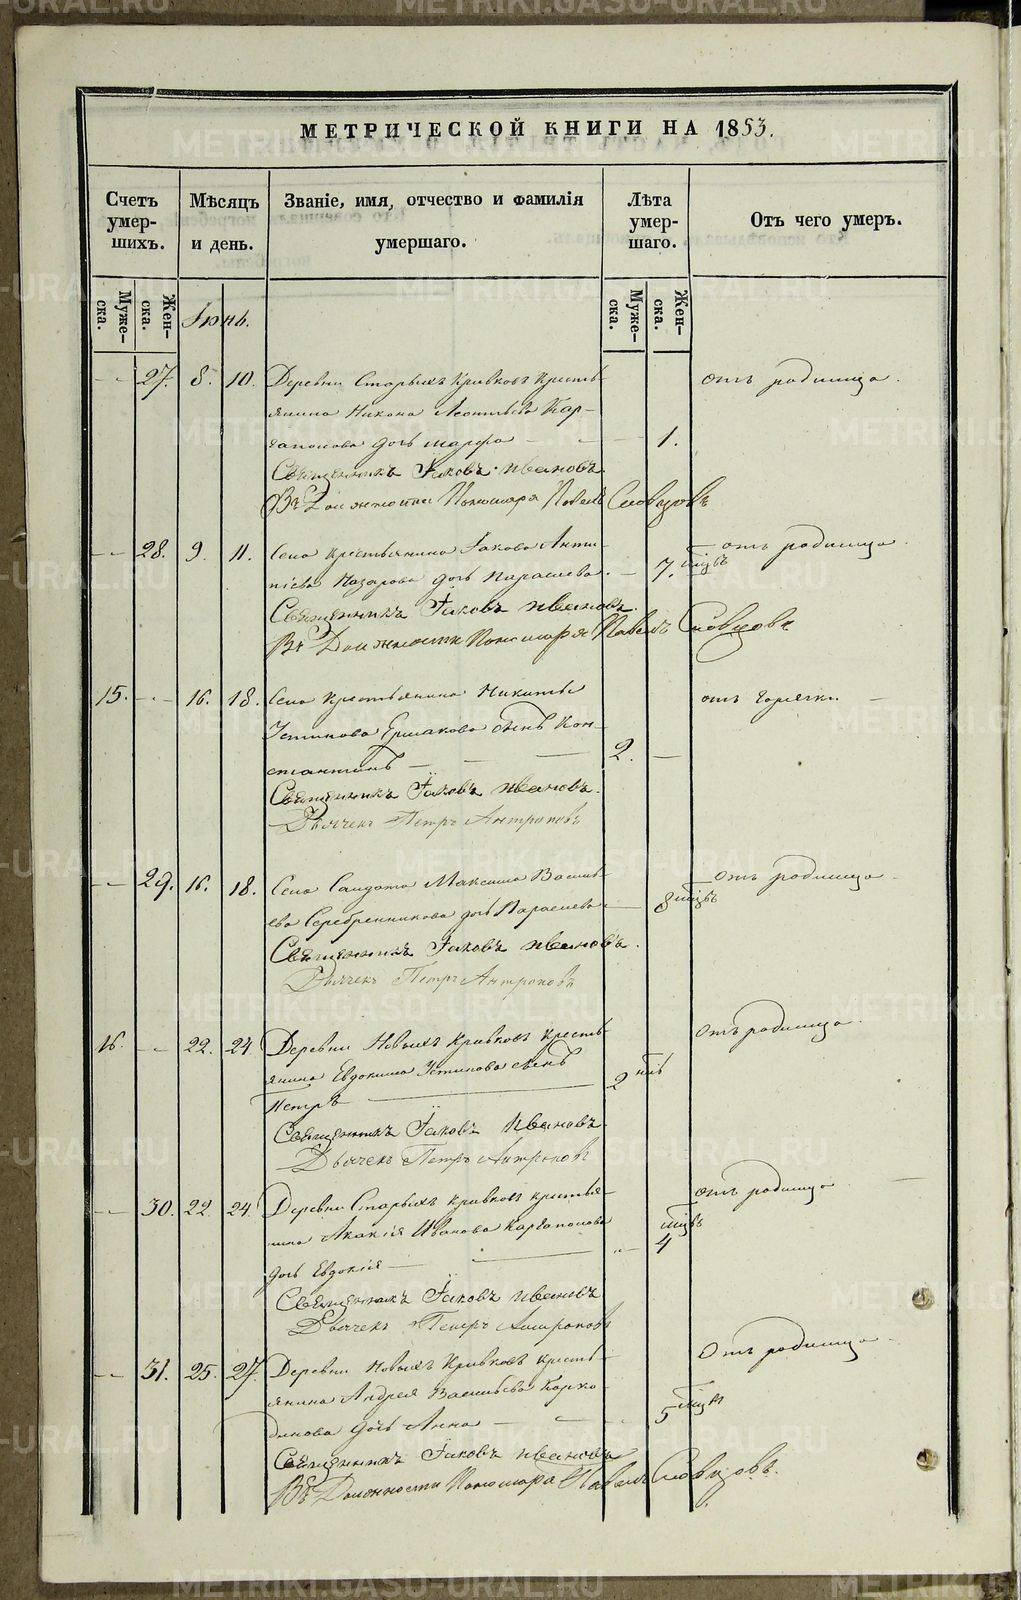 МЕТРИЧЕСКОЙ КНИГИ НА 1853.
Счетъ умер- шихъ.
Мѣсяцъ и день.
Званіе, имя, отчество и фамилія умершаго.
Лѣта умер- шаго.
Отъ чего умеръ.
Муже- ска.
Жен- ска.
Іюнь.
Муже- ска.
Жен- ска.
27. 8. 10. Деревни Старыхъ Кривковъ Кресть- отъ родимца.
янина Никона Леонтьева Кар-
гаполова дочь Марфа 1.
Священникъ Іаковъ Ивановъ.
Въ Должности Пономаря Павелъ Словцовъ
28. 9. 11. Села Крестьянина Іакова Анти- отъ родимца.
піева Назарова дочь Параскева. 7. мцвъ
Священникъ Іаковъ Ивановъ.
Въ Должности Пономаря Павелъ Словцовъ
15. 16. 18. Села Крестьянина Никиты отъ горячки.
Устинова Ермакова сынъ Кон-
стантинъ 2.
Священникъ Іаковъ Ивановъ.
Дьячекъ Петръ Антроповъ
29. 16. 18. Села Солдата Максима Василь- отъ родимца
ева Серебренникова дочь Параскева 8 мцвъ
Священникъ Іаковъ Ивановъ.
Дьячекъ Петръ Антроповъ
16. 22. 24 Деревни Новыхъ Кривковъ Кресть- Отъ родимца
янина Евдокима Устинова сынъ 2
Петръ
Священникъ Іаковъ Ивановъ.
Дьячекъ Петръ Антроповъ
30. 22. 24. Деревни Старыхъ Кривковъ крестья- отъ родимца
нина Акакія Иванова Каргаполова мцвъ
дочь Евдокія 4
Священникъ Іаковъ Ивановъ
Дьячекъ Петръ Антроповъ
31. 25. 27. Деревни Новыхъ Кривковъ Кресть- Отъ родимца
янина Андрея Васильева Корко- 5
динова дочь Анна
Священникъ Іаковъ Ивановъ
Въ Должности Пономаря Павелъ Словцовъ.
METRIKI.GASO-URAL.RU